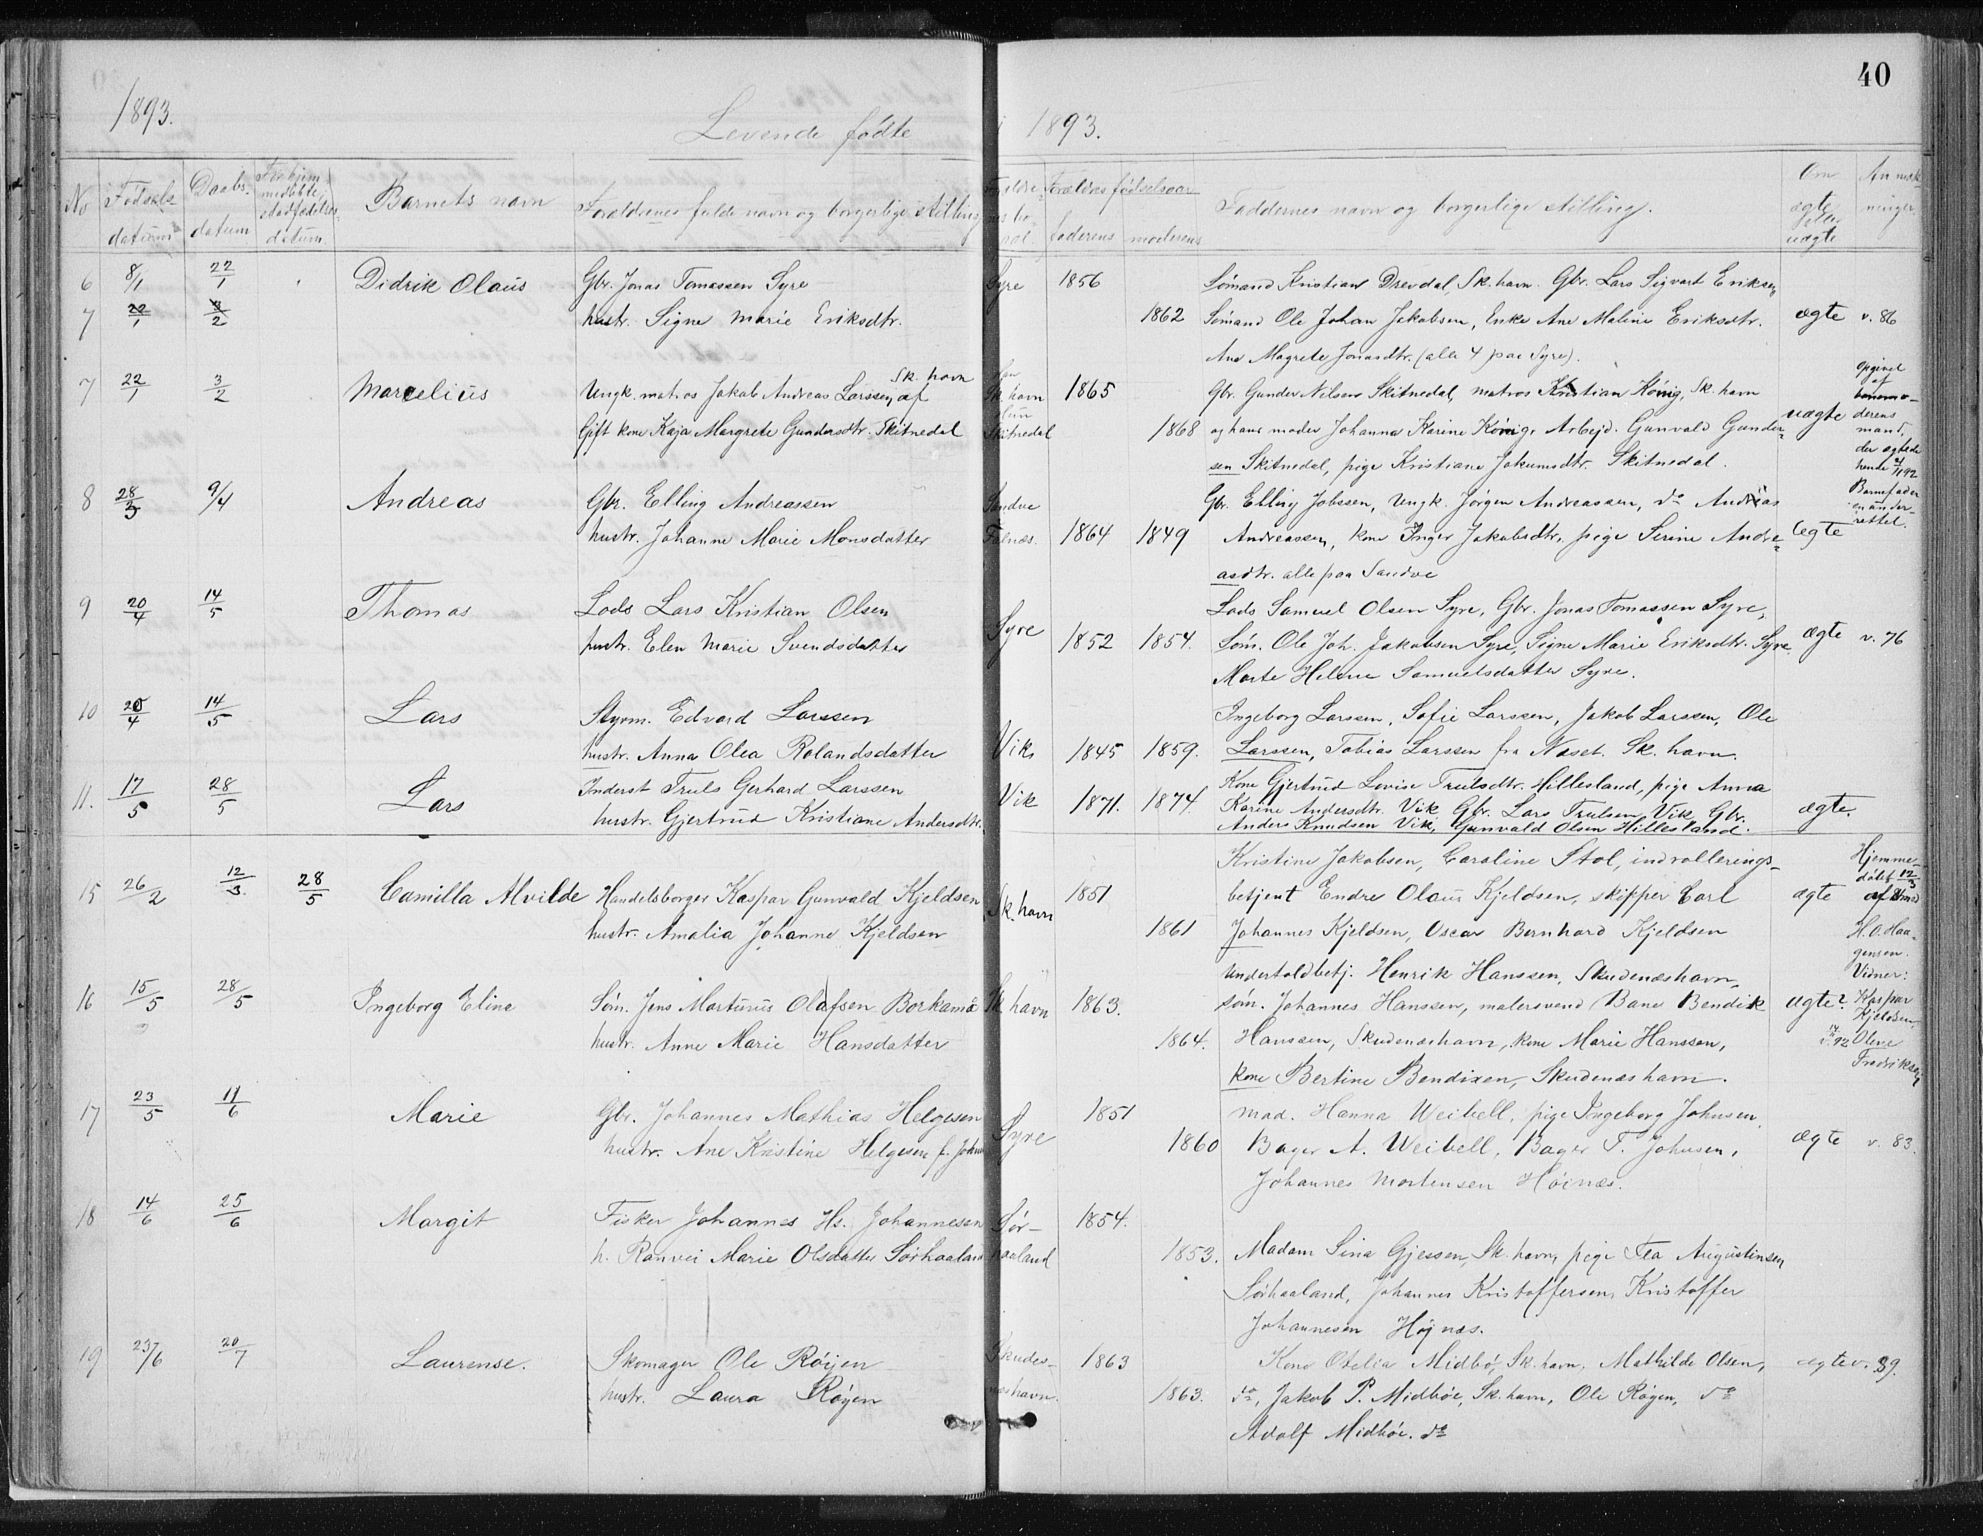 40
1893.
Levende fødte
i 1893.
No
Fødsels-
datum
Daabs-
datum
For hjem-
medøbte,
stadfæstelses
datum
Barnets navn
Forældrenes fulde navn og borgerlige stilling
Foræl-
nes bo-
Forældres fødselsaar
faderens
moderens
Faddernes navn og borgerlige stilling.
Om
ægte
eller
uægte
Anmærk-
ninger.
6 8/1 22/1 Didrik Olaus Gbr. Jonas Tomassen Syre Syre 1856 Sømand Kristian Drevdal, Sk.havn. Gbr. Lars Sigvart Eriksen
7 22/1 3/2 hustr. Signe Marie Eriksdtr. 1862 Sømand Ole Johan Jakobsen, Enke Ane Maline Eriksdtr. ægte v. 86
Ane Magrete Jonasdtr. (alle 4 paa Syre).
7 22/1 3/2 Marcelius Ungk. matros Jakob Andreas Larssen af Sk. havn Sk. havn 1865 Gbr. Gunder Nilsen Skitnedal, matros Kristian König, Sk. havn
Gift kone Kaja Margrete Gundersdtr. Skitnedal Skitnedal 1868 og hans moder Johanna Karine König, Arbejd. Gunvald Gunder- uægte
sen Skitnedal, pige Kristiane Jokumsdtr. Skitnedal.
Opgivet
af
barnemo-
derens
mand,
der ægtede
hende
Barnefader
en ander-
rettet.
8 28/3 9/4 Andreas Gbr. Elling Andreassen Sandve Gbr. Elling Jobssen, Ungk. Jørgen Andreassen, do Andreas
hustr. Johanne Marie Monsdatter Falnæs. 1864 1849 Andreassen, kone Inger Jakobsdtr. pige Serine Andre- Ægte
asdtr. alle paa Sandve
9 20/4 14/5 Thomas Lods Lars Kristian Olsen Syre Lods Samuel Olsen Syre, Gbr. Jonas Tomassen Syre,
hustr. Elen Marie Svendsdatter 1852 1854. Søm. Ole Joh. Jakobsen Syre, Signe Marie Eriksdtr. Syre. ægte v. 76
Marte Helene Samuelsdatter Syre.
10 20/4 14/5 Lars Styrm. Edvard Larssen Ingeborg Larssen, Sofie Larssen, Jakob Larssen, Ole
hustr. Anna Olea Rolandsdatter Vik 1845 1859. Larssen, Tobias Larssen fra Næset. Sk. havn.
11. 17/5 28/5 Lars Inderst Truls Gerhard Larssen Vik 1871. 1874. Kone Gjertrud Lovise Trulsdtr. Hillesland, pige Anna
hustr. Gjertrud Kristiane Andersdtr. Karine Andersdtr. Vik, Gbr. Lars Trulsen, Vik, Gbr. ægte.
Anders Knudsen Vik, Gunvald Olsen Hillesland.
15 26/2 12/3 28/5 Camilla Alvilde Handelsborger Kaspar Gunvald Kjeldsen Sk. havn 1851 Kristine Jakobsen, Caroline Stol, indrullerings-
hustr. Amalia Johanne Kjeldsen betjent Endre Olaus Kjeldsen, skipper Carl ægte
1861 Johannes Kjeldsen, Oscar Bernhard Kjeldsen
Hjemme-
døbt 12/3
H.O. Haa-
gensen.
Vidner:
Kaspar
Kjeldsen,
Olene
Fredriksen
Undertoldbetj. Henrik Hanssen, Skudenæshavn,
16 15/5 28/5 Ingeborg Eline Søm. Jens Martinus Olafsen Borkamo Sk. havn 1863. søm. Johannes Hanssen, malersvend Bane Bendik ægte?
hustr. Anne Marie Hansdatter 1864. Hanssen, Skudenæshavn, kone Marie Hanssen, v. 92
kone Bertine Bendixen, Skudenæshavn.
17 23/5 11/6 Marie Gbr. Johannes Mathias Helgesen Syre 1851 mad. Hanna Weibell, pige Ingeborg Johnsen,
hustr. Ane Kristine Helgesen f. 1860 Bager A. Weibell, Bager T. Johnsen, ægte v. 83.
Johannes Mortensen Høinæs.
18 14/6 25/6 Margit Fisker Johannes Hs. Johannesen Sør- 1854.
h. Ranvei Marie Olsdatter Sørhaaland haaland 1853. Madam Sina Gjessen, Sk. havn, pige Tea Augustinsen
Sørhaaland, Johannes Kristoffersen, Kristoffer
Johannesen Højnæs.
19 23/6 20/7 Laurense. Skomager Ole Röijen Skudes- 1863 Kone Otelia Midbø, Sk. havn, Mathilde Olsen, ægte v. 89.
hustr. Laura Røyen næshavn. 1863. do, Jakob P. Midbøe, Sk. havn, Ole Røyen, do
Adolf Midbøe. do